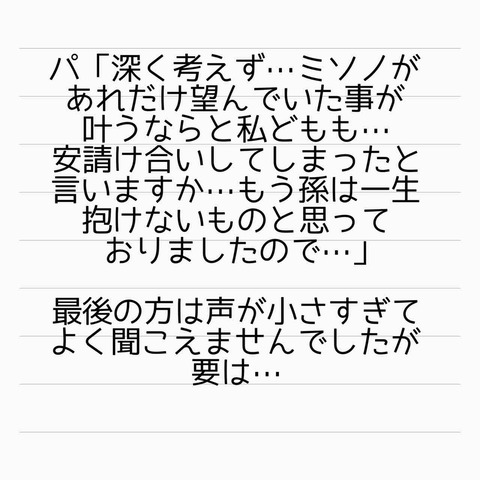 パ「深く考えず…ミソノが
あれだけ望んでいた事が
叶うならと私どもも…
安請け合いしてしまったと
言いますか…もう孫は一生
抱けないものと思って
おりましたので…」
最後の方は声が小さすぎて
よく聞こえませんでしたが
要は…